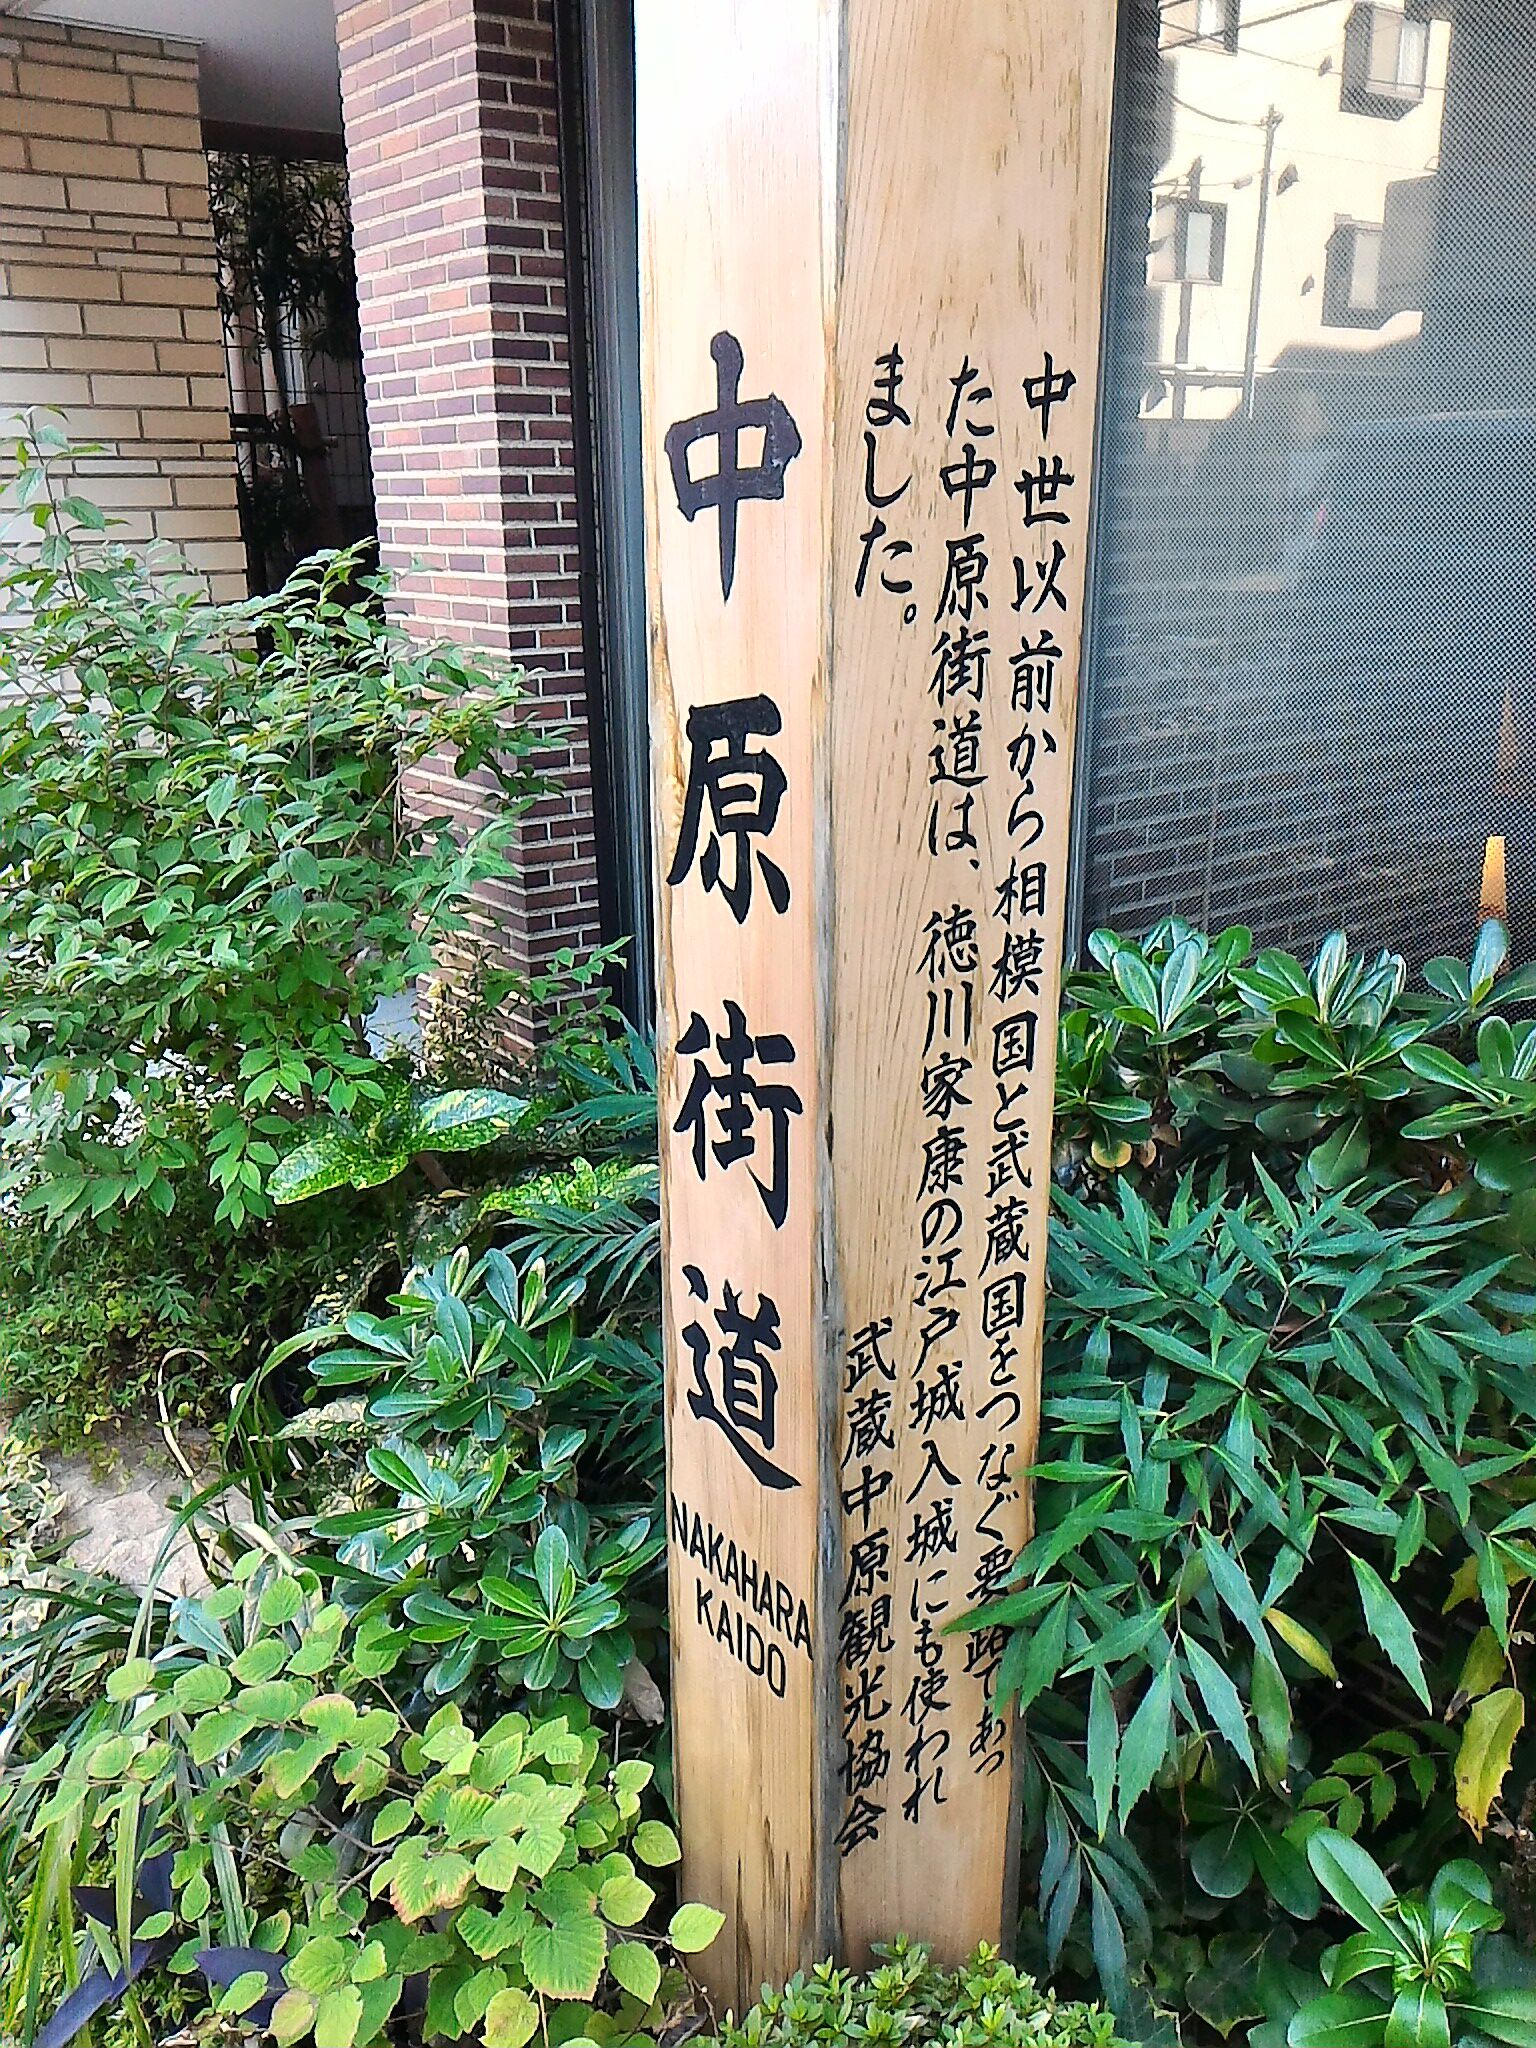 中原街道
NAKAHARA
KAIDO
中世以前から相模国と武蔵国をつなぐ要路であっ
た中原街道は、徳川家康の江戸城入城にも使われ
ました。
武蔵中原観光協会